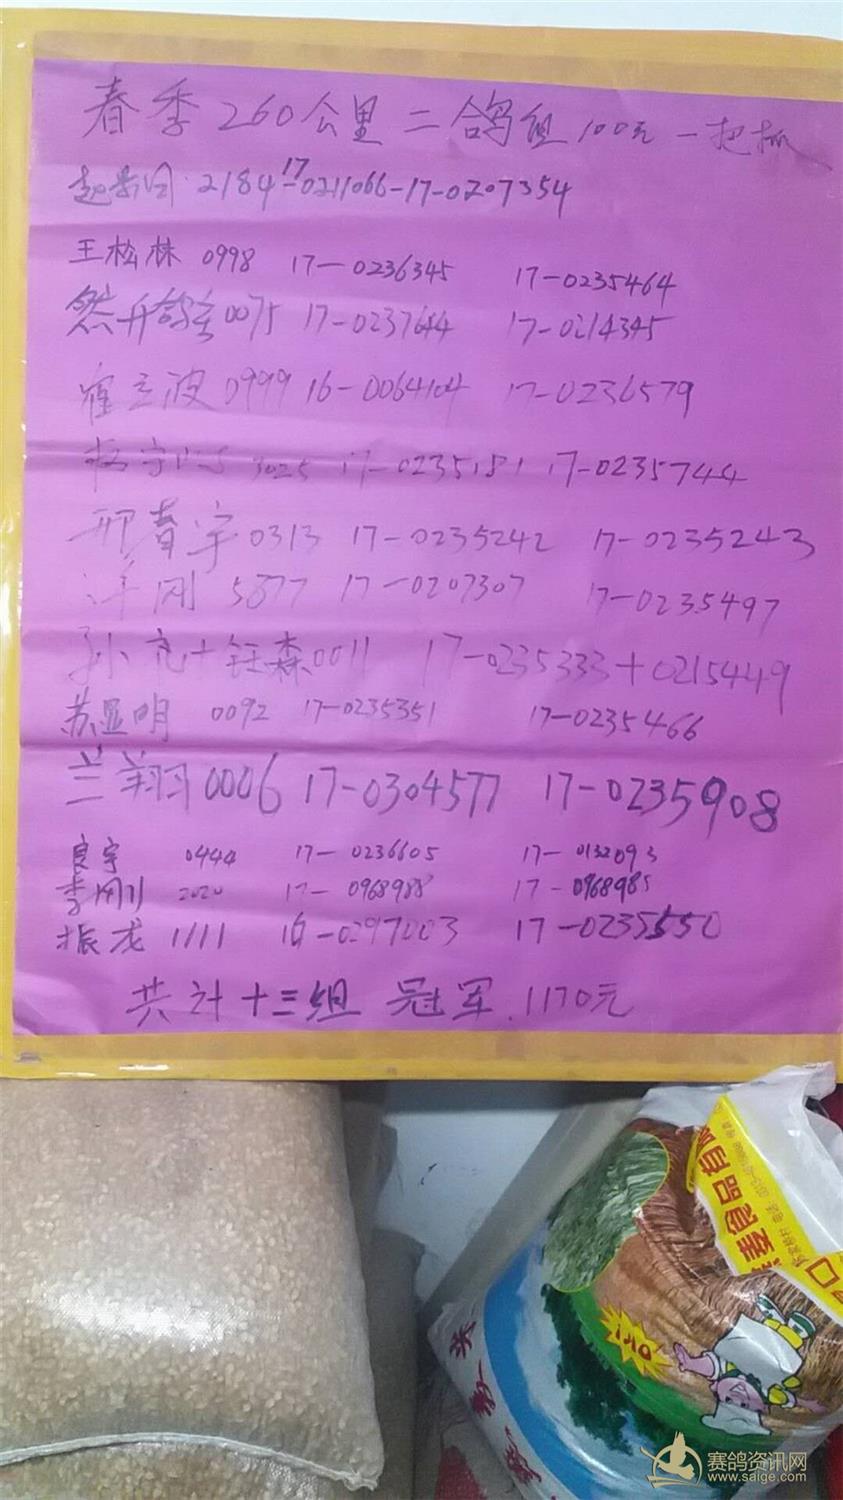 春季260公里二鸽组100元一把抓
赵 2184 17-0211066-17-0207354
王松林 0998 17-0236345 17-0235464
然升鸽舍0075 17-0237644 17-0214345
崔立波 0999 16-0064104 17-0236579
杨宇 3025 17-0235181 17-0235744
邢春宇 0313 17-0235242 17-0235243
洋刚 5877 17-0207307 17-0235497
孙亢+钰森0011 17-0235333+0215449
苏显明 0092 17-0235351 17-0235466
兰翔0006 17-0304577 17-0235908
良宇 0444 17-0236605 17-0132093
李刚 2020 17-0968988 17-0968985
振龙 1111 16-0297003 17-0235550
共计十三组 冠军.1170元
赛鸽资讯网
www.saige.com